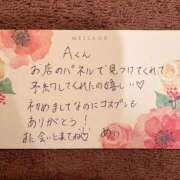 MESSAGE
Aくん
お店のパネルで見つけてくれて
予約してくれたの嬉しい♡
初めましてなのにコスプレと
ありがとう!
また会いたいまってね♡ めい